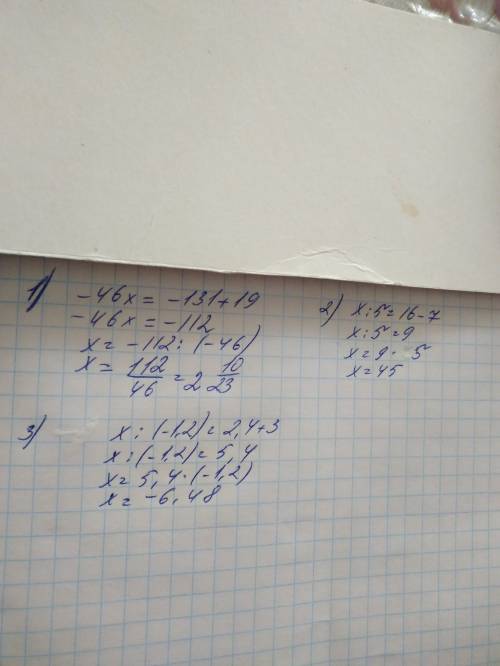 1) -46x = -131+19
-46x = -112
x = -112 : (-46)
x = 112/46 = 2 10/23
2) x : 5 = 16-7
x : 5 = 9
x = 9 · 5
x = 45
3) x : (-1,2) = 2,4+3
x : (-1,2) = 5,4
x = 5,4 · (-1,2)
x = -6,48